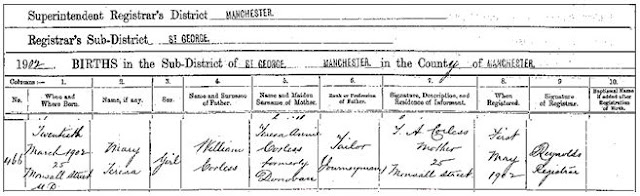 Superintendent Registrar's District MANCHESTER.
Registrar's Sub-District ST GEORGE.
1902. BIRTHS in the Sub-District of ST GEORGE, MANCHESTER. in the County of MANCHESTER.
Columns :— 1. 2. 3. 4. 5. 6. 7. 8. 9. 10.
No. When and Where Born. Name, if any. Sex. Name and Surname of Father. Name and Maiden Surname of Mother. Rank or Profession of Father. Signature, Description, and Residence of Informant. When Registered. Signature of Registrar. Baptismal Name if added after Registration of Birth.
466 Twentieth March 1902 25 Monsall Street U.D. Mary Teresa Girl William Corless Teresa Annie Corless formerly Donovan Tailor Journeyman T. A Corless Mother 25 Monsall Street First May 1902 Reynolds Registrar